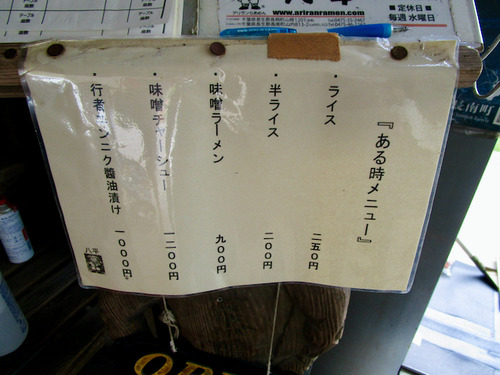 『ある時メニュー』
・ライス 二五〇円
・半ライス 二〇〇円
・味噌ラーメン 九〇〇円
・味噌チャーシュー 一二〇〇円
・行者ニンニク醤油漬け 一〇〇〇円
八平
www.ariranramen.com
■定休日■
毎週 水曜日
OPE